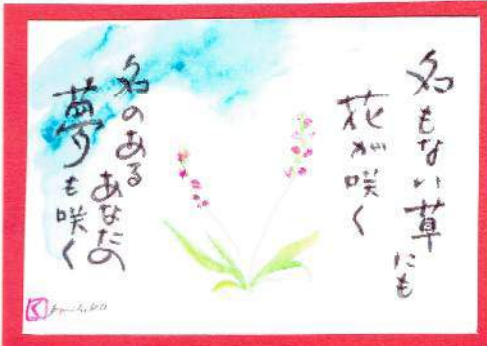 名もない草にも
花が咲く
名のある
あなたの
夢も咲く